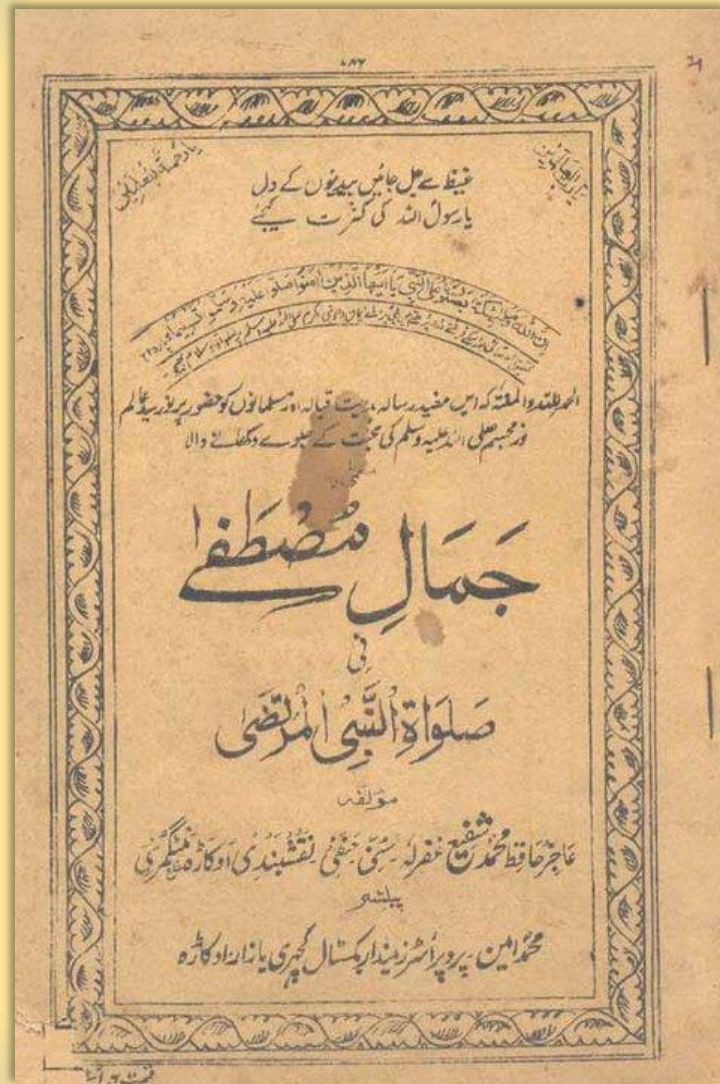 ۷۸۶
یا رحمۃ للعالمین
غیظ سے جل جائیں بیدینوں کے دل
یا رسول اللہ کی کثرت کیجئے
ان اللہ وملئکتہ یصلون علی النبی یا ایھا الذین امنوا صلوا علیہ وسلموا تسلیما
الحمد للہ والمنۃ کہ اس مفید رسالہ، اور مسلمانوں کو حضور پر نور سید عالم
نور مجسم صلی اللہ علیہ وسلم کی محبت کے جلوے دکھانے والا
جَمَالِ مُصْطَفٰے
فی
صَلَوَاةِ النَّبِیِ الْمُرتَضٰی
مؤلفہ
عاجز حافظ محمد شفیع غفرلہ سنی حنفی نقشبندی اوکاڑہ منٹگمری
پبلشر
محمد امین پروپرائٹر زمیندار بکسٹال کچہری بازار اوکاڑہ